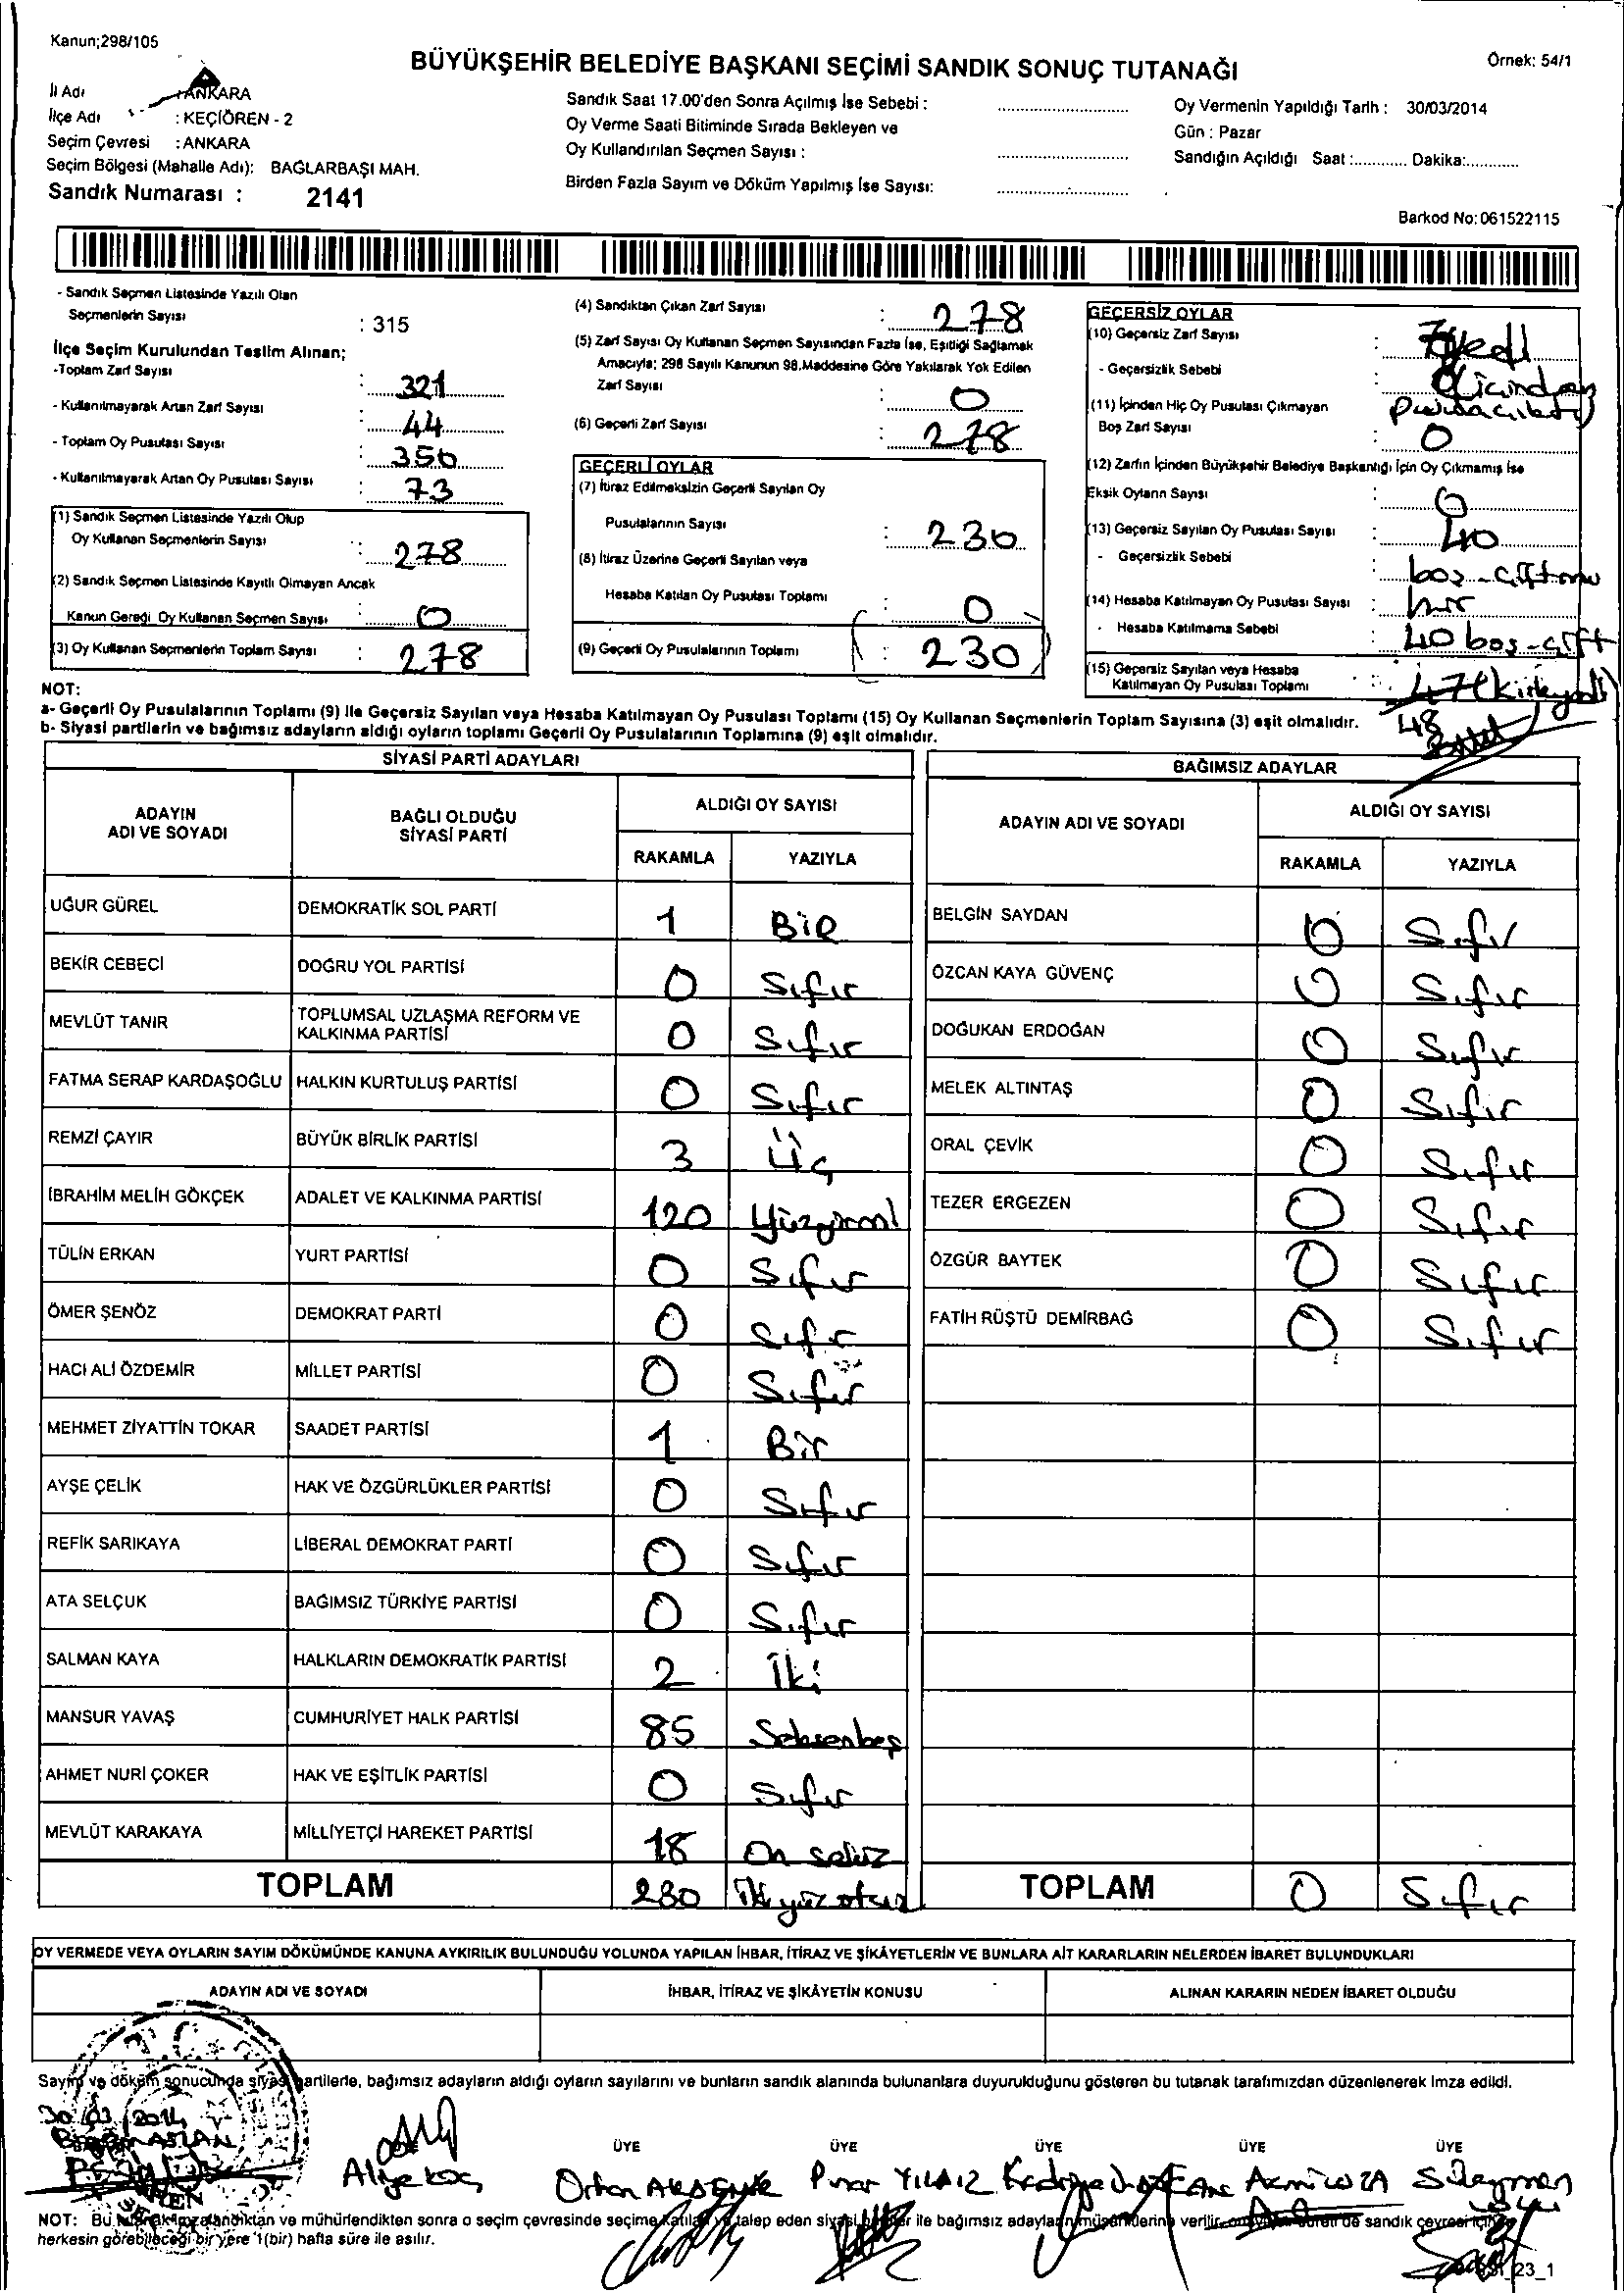 Kanun;298/105
BÜYÜKŞEHİR BELEDİYE BAŞKANI SEÇİMİ SANDIK SONUÇ TUTANAĞI
Örnek: 54/1
İl Adı : ANKARA
İlçe Adı : KEÇİÖREN - 2
Seçim Çevresi : ANKARA
Seçim Bölgesi (Mahalle Adı): BAĞLARBAŞI MAH.
Sandık Numarası : 2141
Sandık Saat 17.00'den Sonra Açılmış İse Sebebi :
Oy Verme Saati Bitiminde Sırada Bekleyen ve
Oy Kullandırılan Seçmen Sayısı :
Birden Fazla Sayım ve Döküm Yapılmış İse Sayısı:
Oy Vermenin Yapıldığı Tarih : 30/03/2014
Gün : Pazar
Sandığın Açıldığı Saat :............ Dakika:............
Barkod No: 061522115
- Sandık Seçmen Listesinde Yazılı Olan
Seçmenlerin Sayısı : 315
İlçe Seçim Kurulundan Teslim Alınan;
-Toplam Zarf Sayısı : 321
- Kullanılmayarak Artan Zarf Sayısı : 44
- Toplam Oy Pusulası Sayısı : 350
- Kullanılmayarak Artan Oy Pusulası Sayısı : 73
(1) Sandık Seçmen Listesinde Yazılı Olup
Oy Kullanan Seçmenlerin Sayısı : 278
(2) Sandık Seçmen Listesinde Kayıtlı Olmayan Ancak
Kanun Gereği Oy Kullanan Seçmen Sayısı : 0
(3) Oy Kullanan Seçmenlerin Toplam Sayısı : 278
(4) Sandıktan Çıkan Zarf Sayısı : 278
(5) Zarf Sayısı Oy Kullanan Seçmen Sayısından Fazla İse, Eşitliği Sağlamak
Amacıyla; 298 Sayılı Kanunun 98.Maddesine Göre Yakılarak Yok Edilen
Zarf Sayısı : 0
(6) Geçerli Zarf Sayısı : 278
GEÇERLİ OYLAR
(7) İtiraz Edilmeksizin Geçerli Sayılan Oy
Pusulalarının Sayısı : 230
(8) İtiraz Üzerine Geçerli Sayılan veya
Hesaba Katılan Oy Pusulası Toplamı : 0
(9) Geçerli Oy Pusulalarının Toplamı : 230
GEÇERSİZ OYLAR
(10) Geçersiz Zarf Sayısı : 7 yedi
- Geçersizlik Sebebi : (içinden
(11) İçinden Hiç Oy Pusulası Çıkmayan
Boş Zarf Sayısı : 0
(12) Zarfın İçinden Büyükşehir Belediye Başkanlığı İçin Oy Çıkmamış İse
Eksik Oyların Sayısı : 0
(13) Geçersiz Sayılan Oy Pusulası Sayısı : 40
- Geçersizlik Sebebi : boş - çift mü
hür
(14) Hesaba Katılmayan Oy Pusulası Sayısı :
- Hesaba Katılmama Sebebi : 40 boş - çift
(15) Geçersiz Sayılan veya Hesaba
Katılmayan Oy Pusulası Toplamı : 47 (kırkyedi)
48
NOT:
a- Geçerli Oy Pusulalarının Toplamı (9) ile Geçersiz Sayılan veya Hesaba Katılmayan Oy Pusulası Toplamı (15) Oy Kullanan Seçmenlerin Toplam Sayısına (3) eşit olmalıdır.
b- Siyasi partilerin ve bağımsız adayların aldığı oyların toplamı Geçerli Oy Pusulalarının Toplamına (9) eşit olmalıdır.
SİYASİ PARTİ ADAYLARI
ADAYIN ADI VE SOYADI BAĞLI OLDUĞU SİYASİ PARTİ ALDIĞI OY SAYISI
RAKAMLA YAZIYLA
UĞUR GÜREL DEMOKRATİK SOL PARTİ 1 Bir
BEKİR CEBECİ DOĞRU YOL PARTİSİ 0 Sıfır
MEVLÜT TANIR TOPLUMSAL UZLAŞMA REFORM VE KALKINMA PARTİSİ 0 Sıfır
FATMA SERAP KARDAŞOĞLU HALKIN KURTULUŞ PARTİSİ 0 Sıfır
REMZİ ÇAYIR BÜYÜK BİRLİK PARTİSİ 3 Üç
İBRAHİM MELİH GÖKÇEK ADALET VE KALKINMA PARTİSİ 120 Yüzyirmi
TÜLİN ERKAN YURT PARTİSİ 0 Sıfır
ÖMER ŞENÖZ DEMOKRAT PARTİ 0 Sıfır
HACI ALİ ÖZDEMİR MİLLET PARTİSİ 0 Sıfır
MEHMET ZİYATTİN TOKAR SAADET PARTİSİ 1 Bir
AYŞE ÇELİK HAK VE ÖZGÜRLÜKLER PARTİSİ 0 Sıfır
REFİK SARIKAYA LİBERAL DEMOKRAT PARTİ 0 Sıfır
ATA SELÇUK BAĞIMSIZ TÜRKİYE PARTİSİ 0 Sıfır
SALMAN KAYA HALKLARIN DEMOKRATİK PARTİSİ 2 İki
MANSUR YAVAŞ CUMHURİYET HALK PARTİSİ 85 Seksenbeş
AHMET NURİ ÇOKER HAK VE EŞİTLİK PARTİSİ 0 Sıfır
MEVLÜT KARAKAYA MİLLİYETÇİ HAREKET PARTİSİ 18 On sekiz
TOPLAM 230 İkiyüz otuz
BAĞIMSIZ ADAYLAR
ADAYIN ADI VE SOYADI ALDIĞI OY SAYISI
RAKAMLA YAZIYLA
BELGİN SAYDAN 0 Sıfır
ÖZCAN KAYA GÜVENÇ 0 Sıfır
DOĞUKAN ERDOĞAN 0 Sıfır
MELEK ALTINTAŞ 0 Sıfır
ORAL ÇEVİK 0 Sıfır
TEZER ERGEZEN 0 Sıfır
ÖZGÜR BAYTEK 0 Sıfır
FATİH RÜŞTÜ DEMİRBAĞ 0 Sıfır
TOPLAM 0 Sıfır
OY VERMEDE VEYA OYLARIN SAYIM DÖKÜMÜNDE KANUNA AYKIRILIK BULUNDUĞU YOLUNDA YAPILAN İHBAR, İTİRAZ VE ŞİKÂYETLERİN VE BUNLARA AİT KARARLARIN NELERDEN İBARET BULUNDUKLARI
ADAYIN ADI VE SOYADI İHBAR, İTİRAZ VE ŞİKÂYETİN KONUSU ALINAN KARARIN NEDEN İBARET OLDUĞU
Sayım ve döküm sonucunda siyasi partilerle, bağımsız adayların aldığı oyların sayılarını ve bunların sandık alanında bulunanlara duyurulduğunu gösteren bu tutanak tarafımızdan düzenlenerek imza edildi.
30/03/2014
ÜYE ÜYE ÜYE ÜYE ÜYE
Aliye Koç Orhan Pınar YILDIZ Süleyman
NOT: Bu tutanak imzalandıktan ve mühürlendikten sonra o seçim çevresinde seçime katılan ve talep eden siyasi partiler ile bağımsız adayların müşahitlerine verilir, sandık çevresi içinde
herkesin görebileceği bir yere 1(bir) hafta süre ile asılır.
23_1